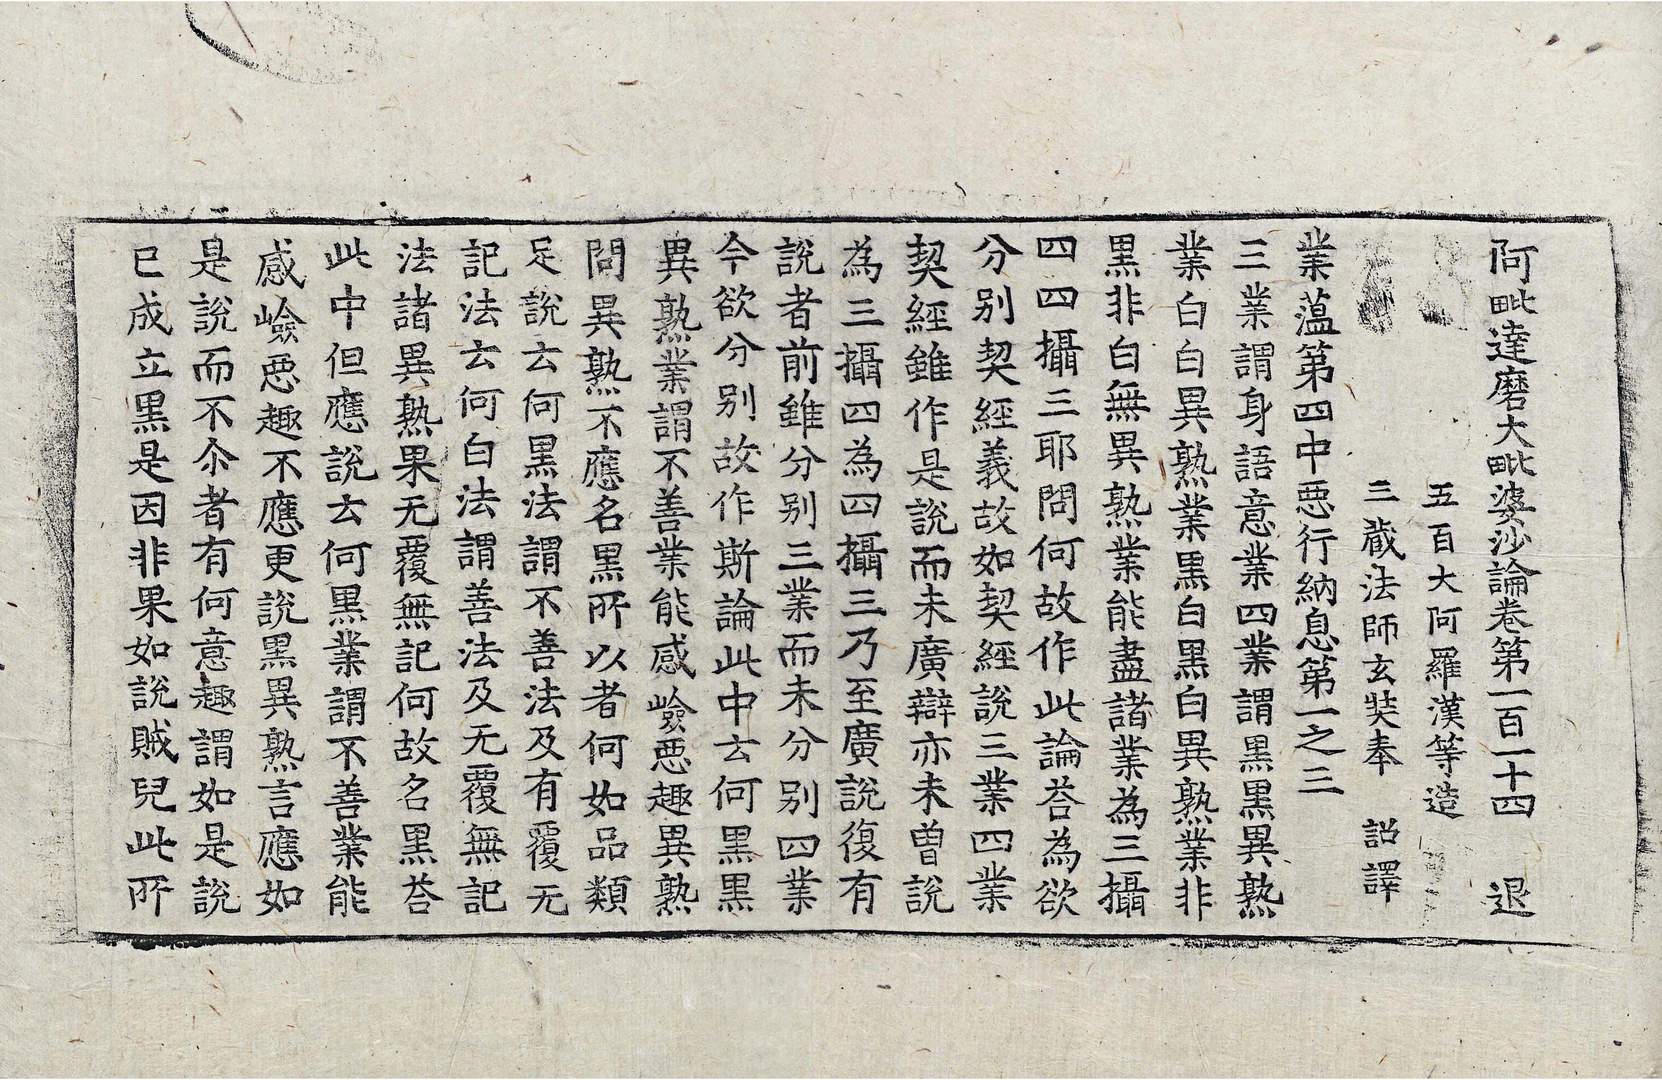 阿毗達磨大毗婆沙論卷第一百一十四　退
五百大阿羅漢等造
三藏法師玄奘奉　詔譯
業蕰第四中惡行納息第一之三
三業謂身語意業四業謂黑黑異熟
業白白異熟業黑白黑白異熟業非
黑非白無異熟業能盡諸業為三攝
四四攝三耶問何故作此論荅為欲
分別契經義故如契經說三業四業
契經雖作是說而未廣辯亦未曾說
為三攝四為四攝三乃至廣說復有
說者前雖分別三業而未分別四業
今欲分別故作斯論此中云何黑黑
異熟業謂不善業能感嶮惡趣異熟
問異熟不應名黑所以者何如品類
足說云何黑法謂不善法及有覆无
記法云何白法謂善法及无覆無記
法諸異熟果无覆無記何故名黑荅
此中但應說云何黑業謂不善業能
感嶮惡趣不應更說黑異熟言應如
是說而不尒者有何意趣謂如是說
已成立黑是因非果如說賊兒此所